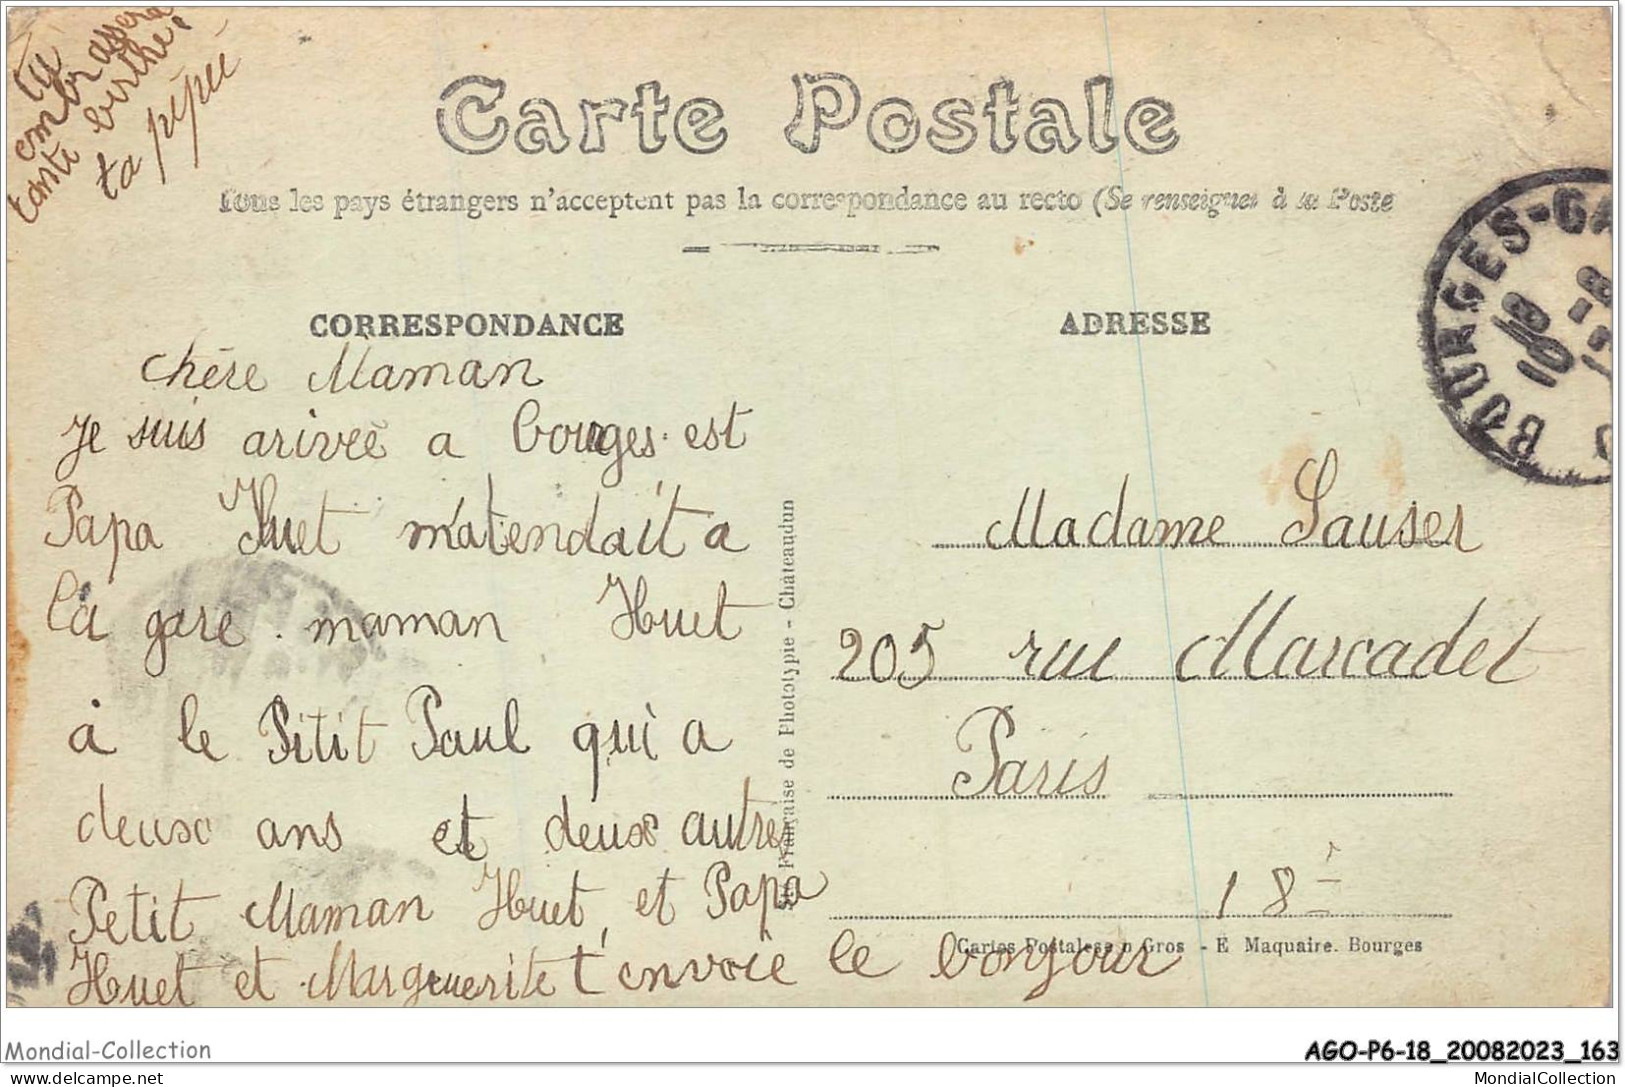 Tu
embrassera
tante birthe
ta pipui
Carte Postale
Tous les pays étrangers n'acceptent pas la correspondance au recto (Se renseigner à la Poste
CORRESPONDANCE
ADRESSE
BOURGES-GA
chère Maman
Je suis arivée a Bourges est
Papa Huet m'atendait a
la gare. maman Huet
à le Pitit Paul qui a
deux ans et deux autres
Petit Maman Huet, et Papa
Huet et Marguerite t'envoie le bonjour
Madame Sauser
205 rue Marcadet
Paris
18e
Française de Phototypie - Châteaudun
Cartes Postales en Gros - E Maquaire. Bourges
Mondial-Collection
AGO-P6-18_20082023_163
delcampe.net
MondialCollection